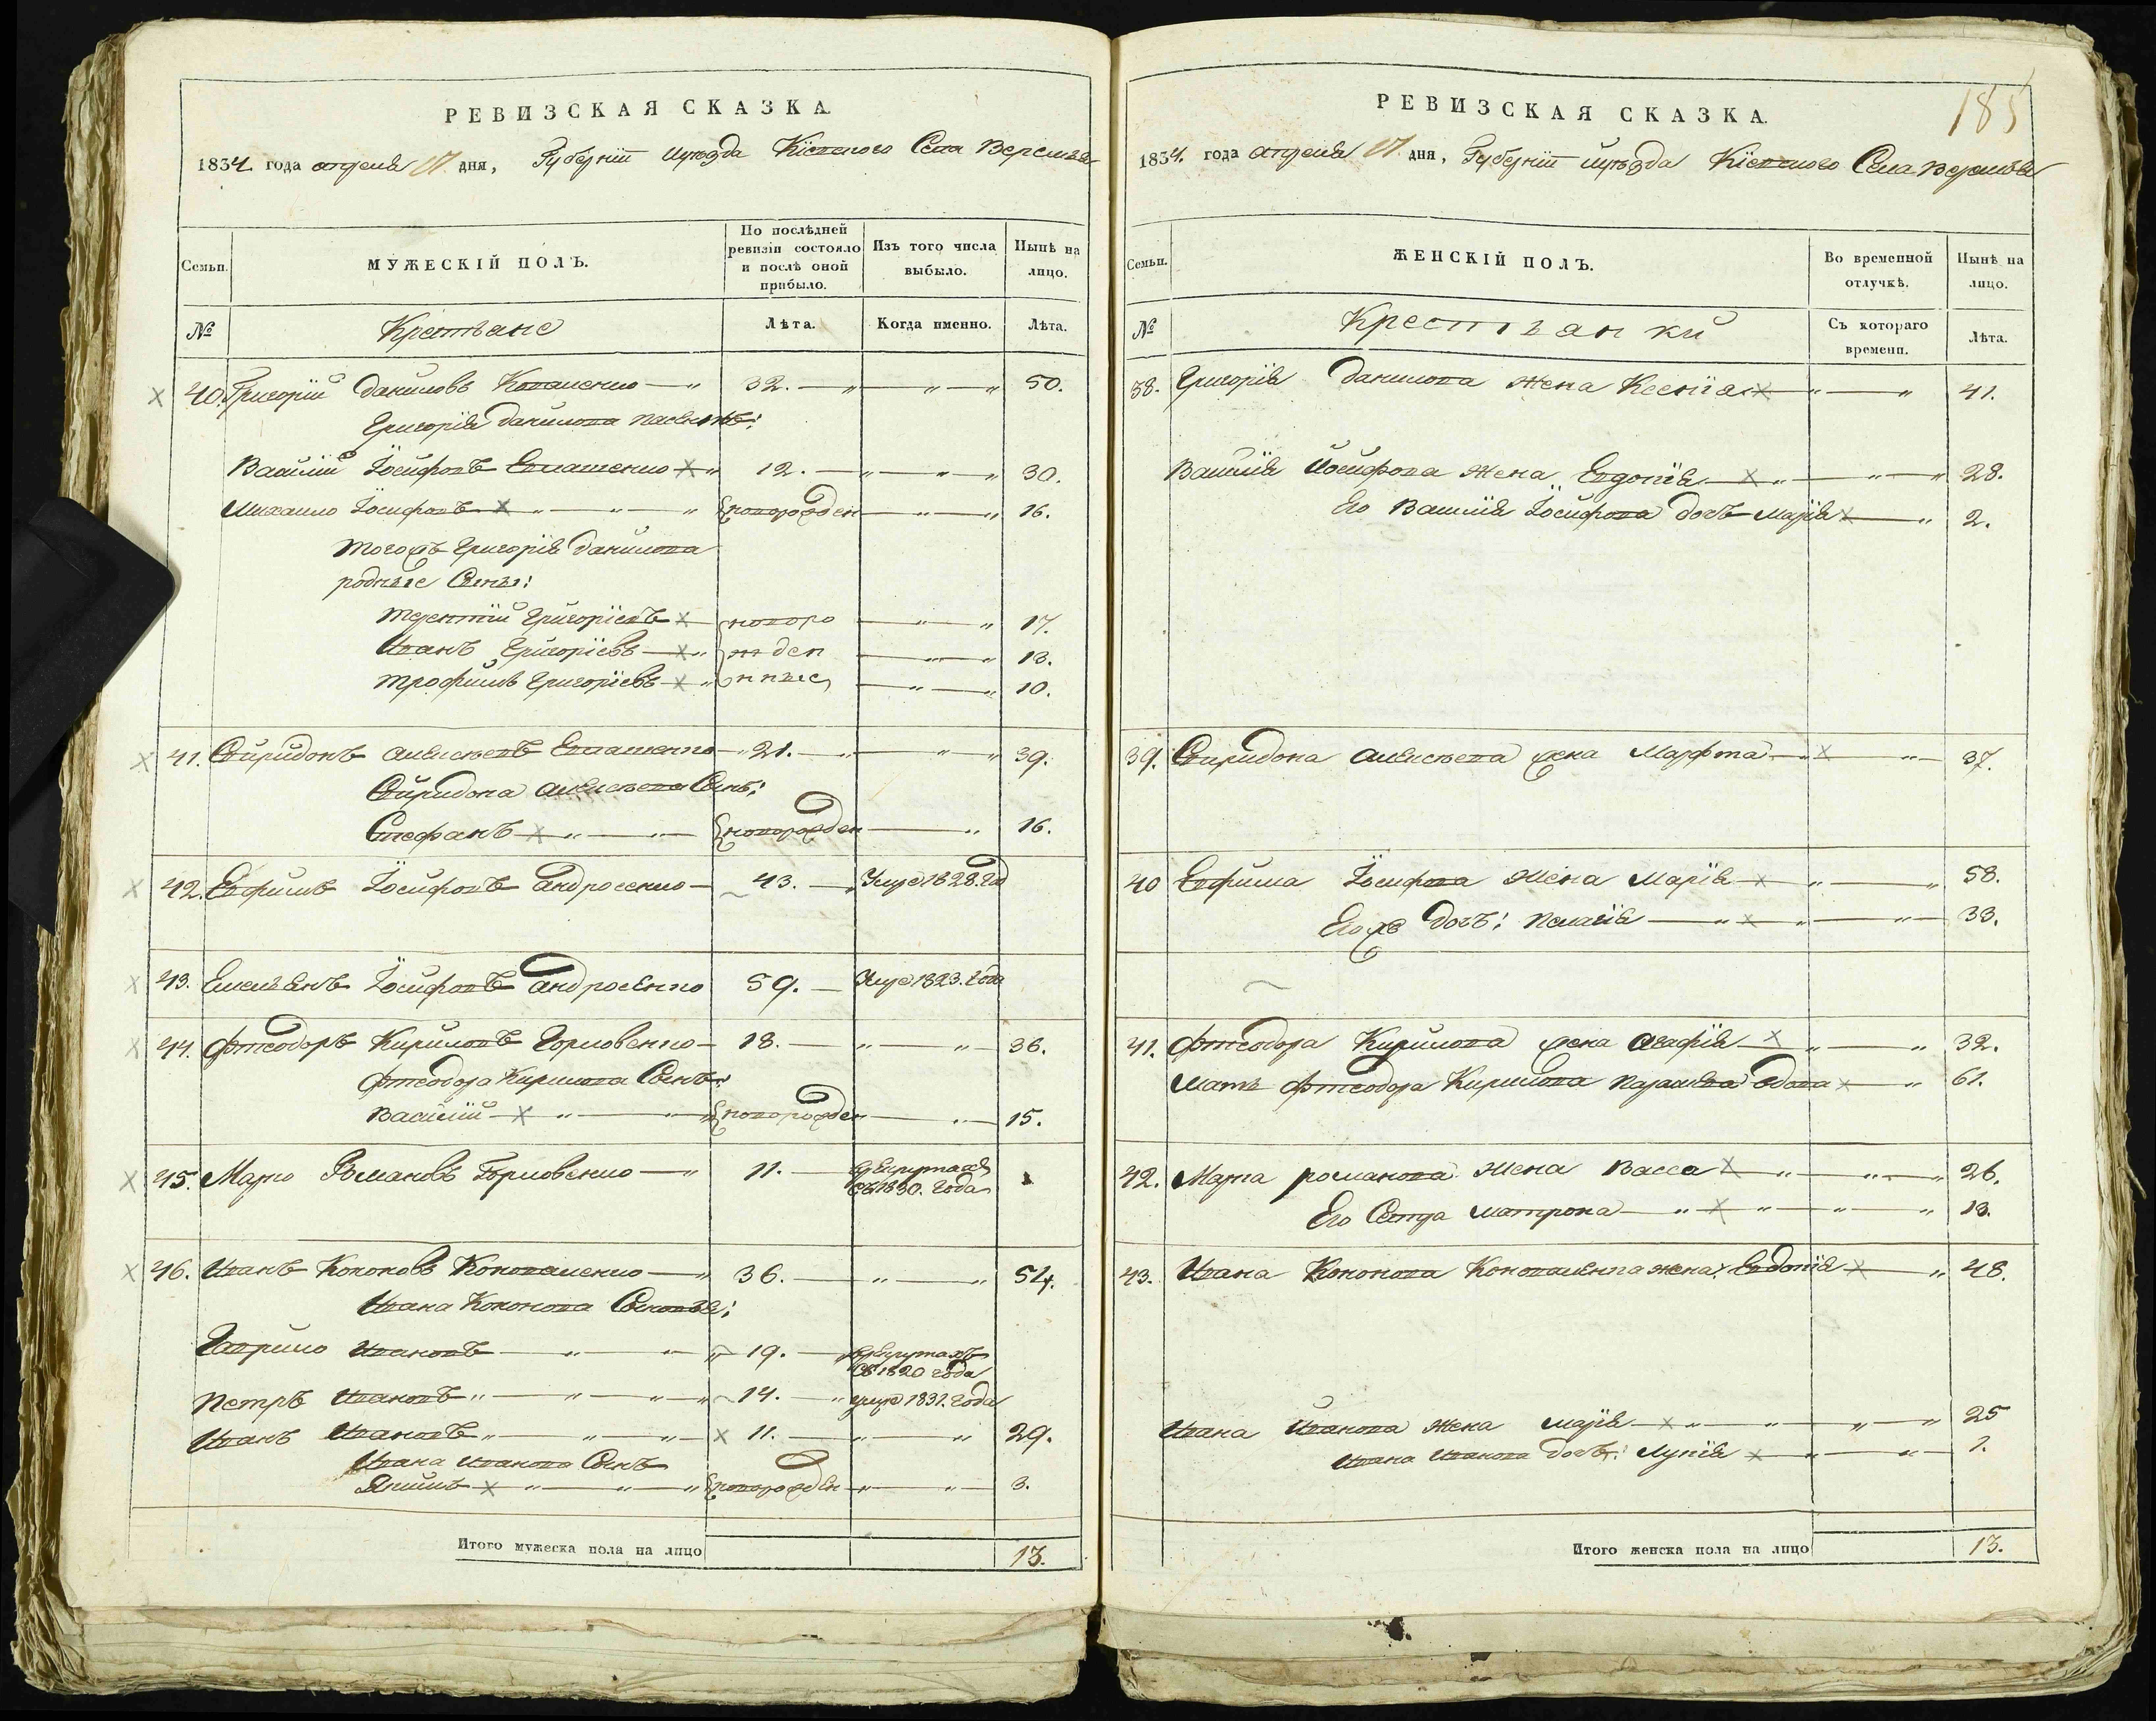 РЕВИЗСКАЯ СКАЗКА.
1834 года апреля 17 дня, Губернїи и уѣзда Кіевскаго Села
Семьи.
МУЖЕСКІЙ ПОЛЪ.
По послѣдней ревизіи состояло и послѣ оной прибыло.
Изъ того числа выбыло.
Нынѣ на лицо.
№
Крестьяне
Лѣта.
Когда именно.
Лѣта.
40. Григорій Даниловъ 32. 50.
Григорія Данилова пасынки:
Василій Іосифовъ 12. 30.
Михаило Іосифовъ новорожден 16.
Тогожъ Григорія Данилова
родные Сыны:
Терентій Григоріевъ новоро 17.
Иванъ Григоріевъ жден 13.
Трофимъ Григоріевъ нные 10.
41. Спиридонъ Алексѣевъ 21. 39.
Спиридона Алексѣева Сынъ:
Стефанъ новорожден 16.
42. Евфимъ Іосифовъ Андросенко 43. Умре 1828. год
43. Емельянъ Іосифовъ Андросенко 59. Умре 1823. года
44. Фтеодоръ Кириловъ Горловенко 18. 36.
Фтеодора Кирилова Сынъ:
Василій новорожден 15.
45. Марко Романовъ Горловенко 11.
съ 1830. года
46. Иванъ Кононовъ Коноваленко 36. 54.
Ивана Кононова Сыновья:
Гаврило Ивановъ 19.
съ 1820 года
Петръ Ивановъ 14. умре 1831. года
Иванъ Ивановъ 11. 29.
Ивана Иванова Сынъ
Якимъ новорожден 3.
Итого мужеска пола на лицо 13.
185
РЕВИЗСКАЯ СКАЗКА.
1834. года апреля 17 дня, Губернїи и уѣзда Кіевскаго Села
Семьи.
ЖЕНСКІЙ ПОЛЪ.
Во временной отлучкѣ.
Нынѣ на лицо.
№
Крестьянки
Съ котораго времени.
Лѣта.
38. Григорія Данилова жена Ксенія 41.
Василія Іосифова жена Евдокія 28.
Его Василія Іосифова дочь Марія 2.
39. Спиридона Алексѣева жена Марфта 37.
40 Евфима Іосифова жена Марія 58.
Егожъ дочь: Пелагія 33.
41. Фтеодора Кирилова жена Агафія 32.
Мать Фтеодора Кирилова вдова 61.
42. Марка Романова жена Васса 26.
Его Сестра Матрона 13.
43. Ивана Кононова Коноваленка жена Евдокія 48.
Ивана Иванова жена Марія 25
Ивана Иванова дочь: 1.
Итого женска пола на лицо 13.